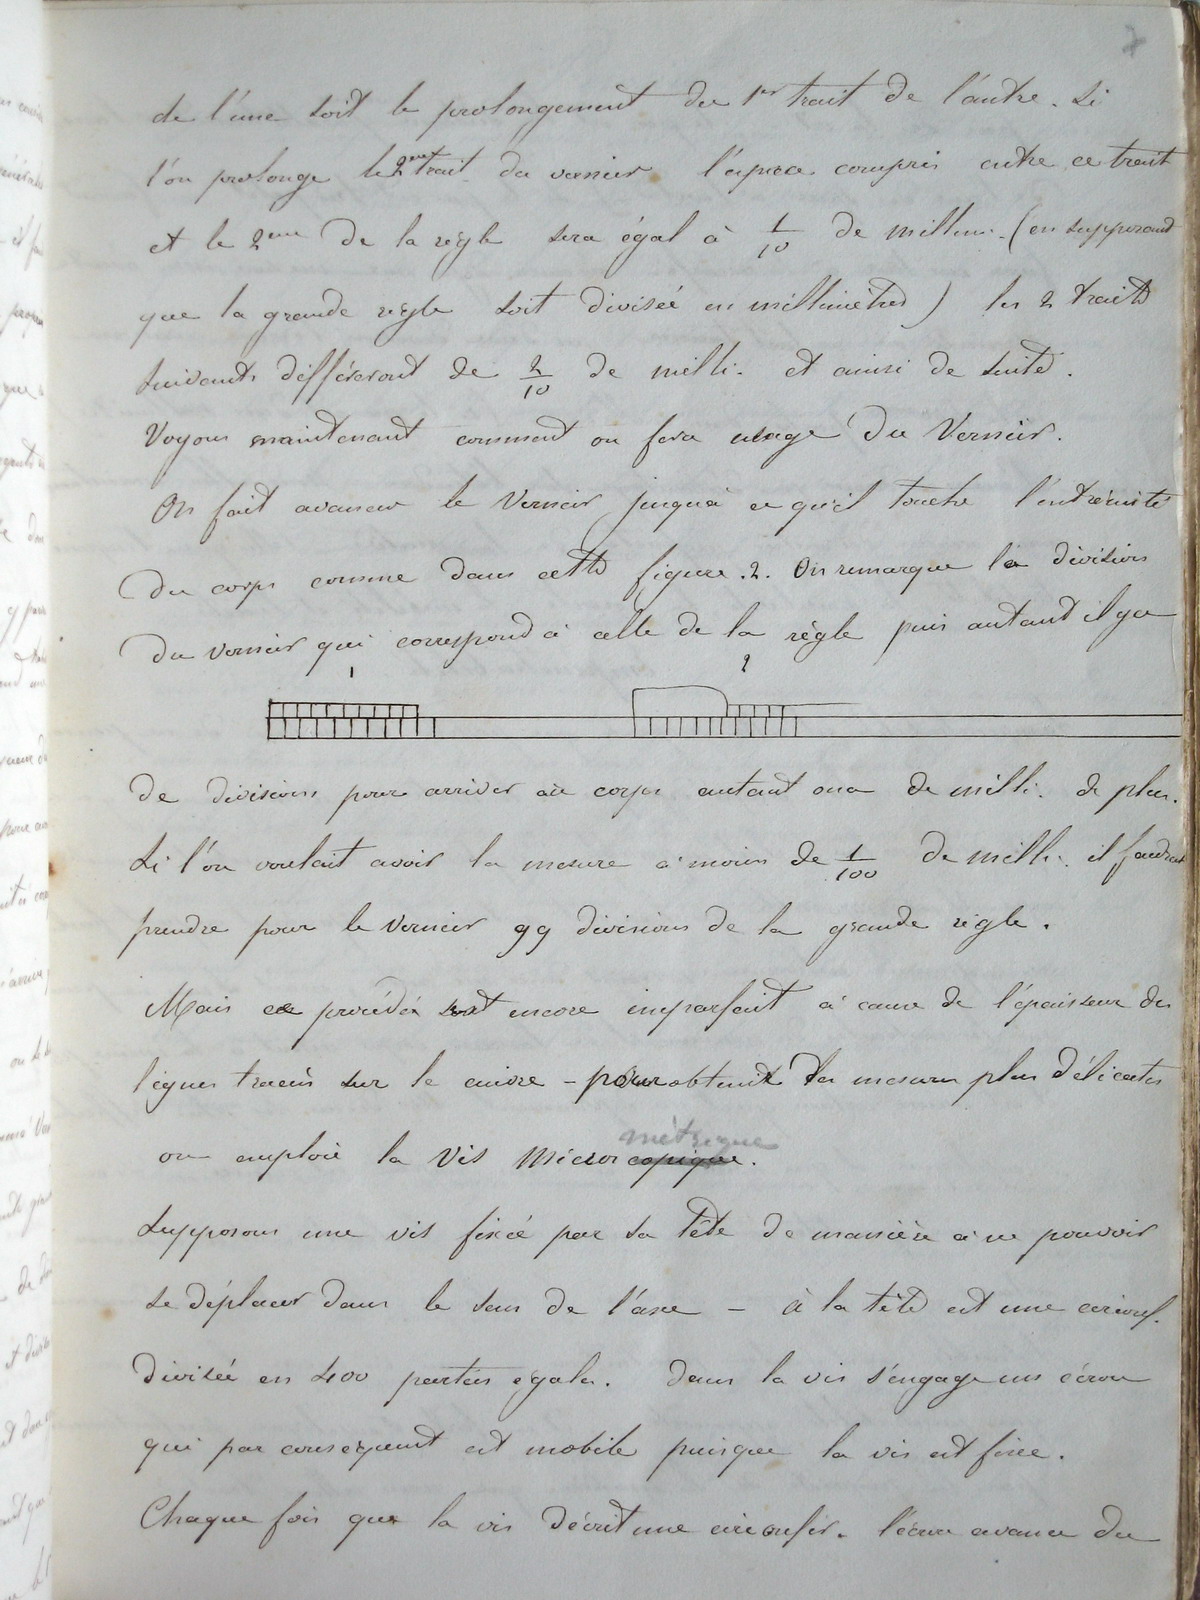 7
de l'une soit le prolongement du 1er trait de l'autre. Si
l'on prolonge le 2me trait du vernier l'espace compris entre ce trait
et le 2me de la règle sera égal à 1/10 de millim. (en supposant
que la grande règle soit divisée en millimètres) les 2 traits
suivants différeront de 2/10 de milli. et ainsi de suite.
Voyons maintenant comment on fera usage du Vernier.
On fait avancer le Vernier jusqu'à ce qu'il touche l'extrémité
du corps comme dans cette figure .2. On remarque la division
du vernier qui correspond à celle de la règle puis autant il y a
1 2
de divisions pour arriver au corps autant on a de milli. de plus.
Si l'on voulait avoir la mesure à moins de 1/100 de milli. il faudrait
prendre pour le Vernier 99 divisions de la grande règle.
Mais ce procédé est encore imparfait à cause de l'épaisseur des
lignes tracées sur le cuivre - pour obtenir des mesures plus délicates
métrique
on emploie la Vis Microscopique.
Supposons une vis fixée par sa tête de manière à ne pouvoir
se déplacer dans le sens de l'axe - à la tête est une circonf.
divisée en 400 parties égales. dans la vis s'engage un écrou
qui par conséquent est mobile puisque la vis est fixée.
Chaque fois que la vis décrit une circonfér. l'écrou avance du